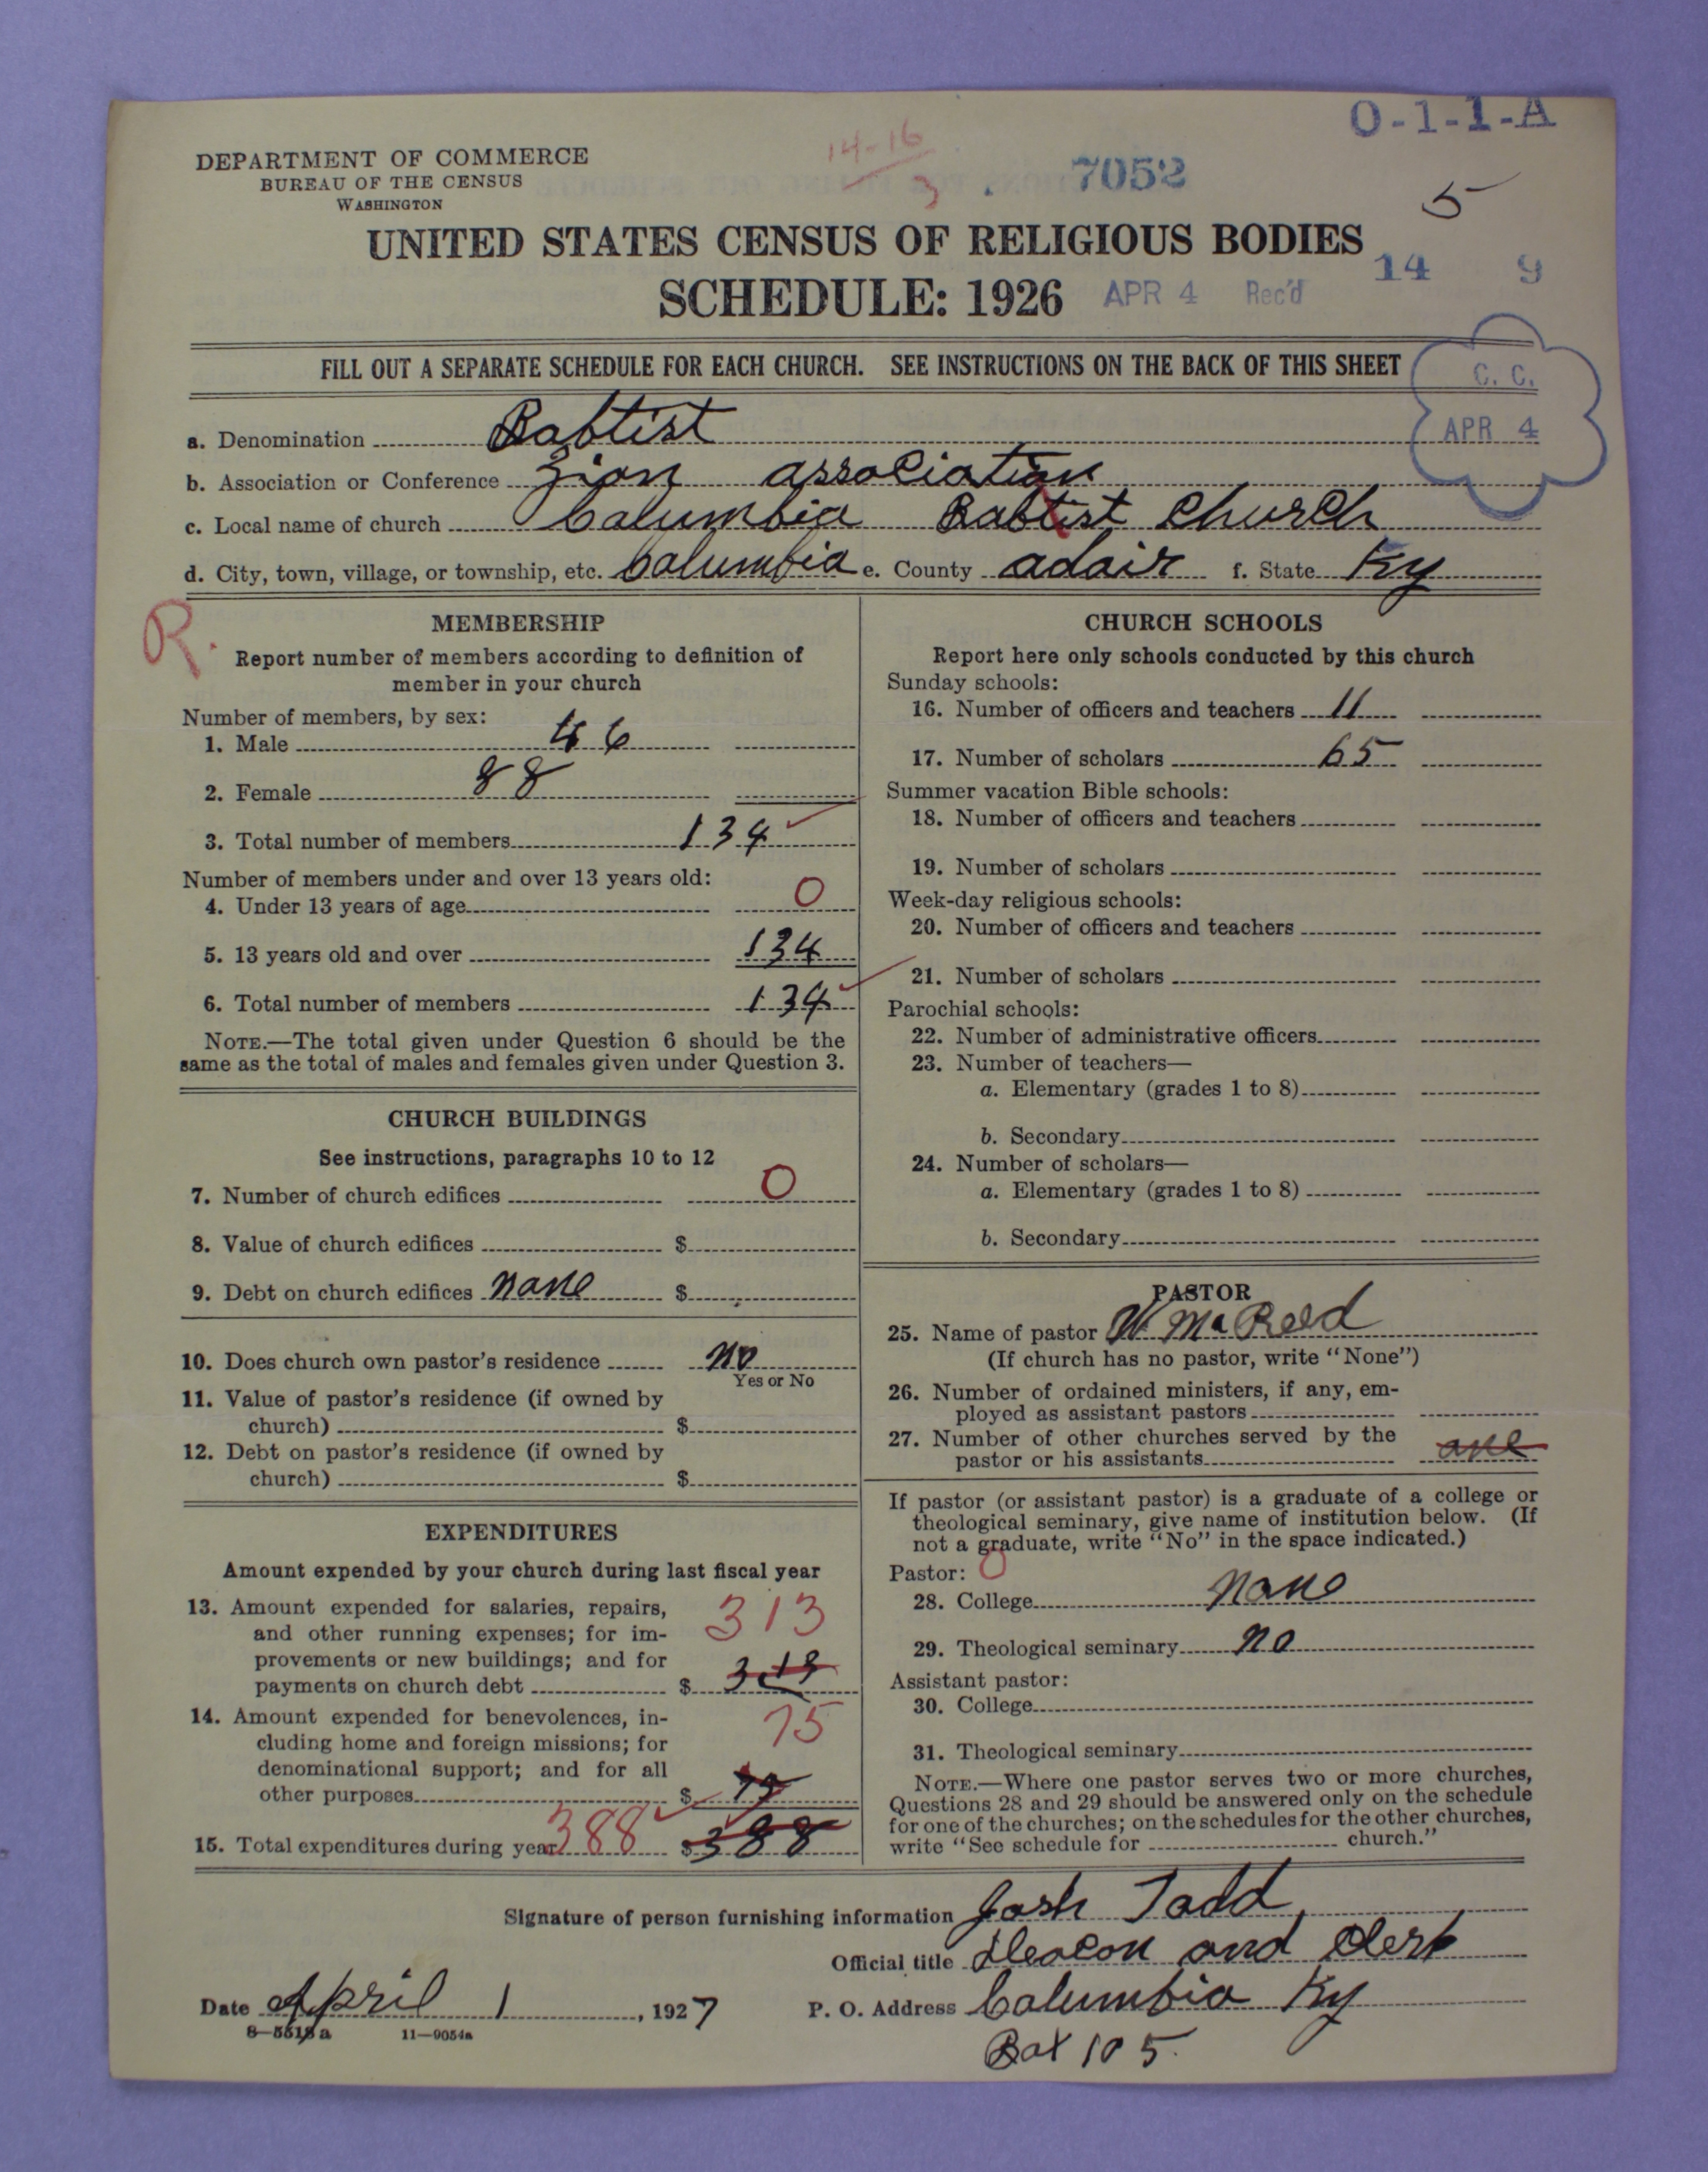 O-1-1-A
14-16
3
7052
5
DEPARTMENT OF COMMERCE
BUREAU OF THE CENSUS
WASHINGTON
UNITED STATES CENSUS OF RELIGIOUS BODIES
14 9
SCHEDULE: 1926 APR 4 Rec'd
FILL OUT A SEPARATE SCHEDULE FOR EACH CHURCH. SEE INSTRUCTIONS ON THE BACK OF THIS SHEET
C. C.
APR 4
a. Denomination Babtist
b. Association or Conference Zion association
c. Local name of church Columbia Babtist Church
d. City, town, village, or township, etc. Columbia e. County adair f. State Ky
R.
MEMBERSHIP
Report number of members according to definition of
member in your church
Number of members, by sex:
1. Male 46
2. Female 88
3. Total number of members 134
Number of members under and over 13 years old:
4. Under 13 years of age 0
5. 13 years old and over 134
6. Total number of members 134
NOTE.—The total given under Question 6 should be the
same as the total of males and females given under Question 3.
CHURCH BUILDINGS
See instructions, paragraphs 10 to 12
7. Number of church edifices 0
8. Value of church edifices $
9. Debt on church edifices none $
10. Does church own pastor's residence no
Yes or No
11. Value of pastor's residence (if owned by
church) $
12. Debt on pastor's residence (if owned by
church) $
EXPENDITURES
Amount expended by your church during last fiscal year
13. Amount expended for salaries, repairs,
and other running expenses; for im-
provements or new buildings; and for
payments on church debt $ 313
14. Amount expended for benevolences, in-
cluding home and foreign missions; for
denominational support; and for all
other purposes $ 75
15. Total expenditures during year 388 $388
CHURCH SCHOOLS
Report here only schools conducted by this church
Sunday schools:
16. Number of officers and teachers 11
17. Number of scholars 65
Summer vacation Bible schools:
18. Number of officers and teachers
19. Number of scholars
Week-day religious schools:
20. Number of officers and teachers
21. Number of scholars
Parochial schools:
22. Number of administrative officers
23. Number of teachers—
a. Elementary (grades 1 to 8)
b. Secondary
24. Number of scholars—
a. Elementary (grades 1 to 8)
b. Secondary
PASTOR
25. Name of pastor W Mc Reed
(If church has no pastor, write "None")
26. Number of ordained ministers, if any, em-
ployed as assistant pastors
27. Number of other churches served by the
pastor or his assistants one
If pastor (or assistant pastor) is a graduate of a college or
theological seminary, give name of institution below. (If
not a graduate, write "No" in the space indicated.)
Pastor: 0
28. College none
29. Theological seminary no
Assistant pastor:
30. College
31. Theological seminary
NOTE.—Where one pastor serves two or more churches,
Questions 28 and 29 should be answered only on the schedule
for one of the churches; on the schedules for the other churches,
write "See schedule for church."
Signature of person furnishing information Josh Todd
Official title Deacon and Clerk
Date April 1, 1927 P. O. Address Columbia Ky
8-5518 a 11-9054a
Box 105.